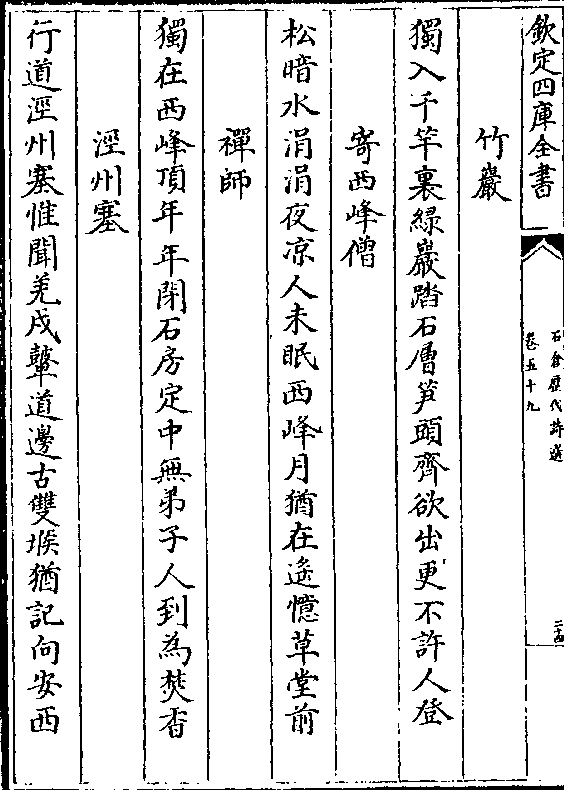 欽定四庫全書
石倉歴代詩選
卷五十九
竹巖
獨入千竿裏緣巖踏石層笋頭齊欲出更不許人登
寄西峰僧
松暗水涓涓夜凉人未眠西峰月猶在遙憶草堂前
禪師
獨在西峰頂年年閉石房定中無弟子人到為焚香
涇州塞
行道涇州塞惟聞羌戍鼙道邊古雙堠猶記向安西